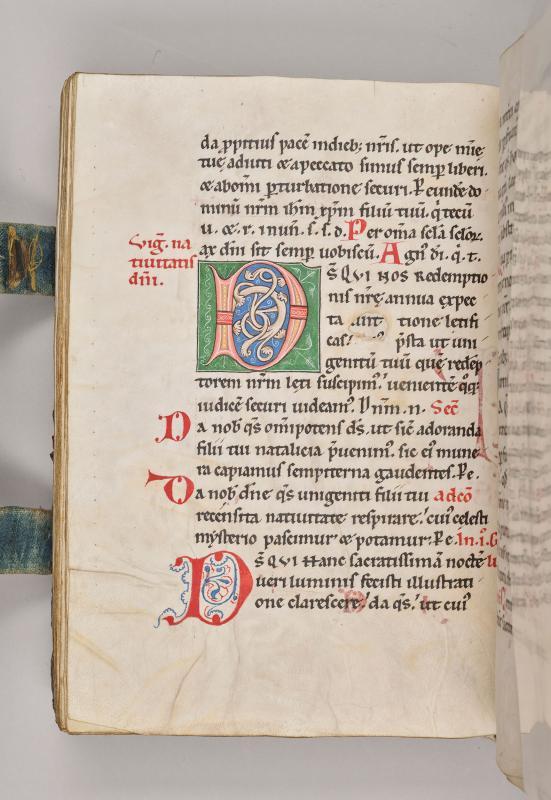 da ꝓpitius pacē in dieb; nr̄is. ut ope mīe
tue adiuti & a peccato simus semꝑ liberi.
& ab om̄i ꝑturbatione securi. P̄ eunde do
minū nr̄m ihm̄ xp̄m filiū tuū. q̄ tecū
u. &. r. in un. s. s. d. Per om̄a sclā sclor.
ax dn̄i sit semꝑ uobiscū. Agn⁹ di. q̄. t.
Vig. na
tiuitatis
dn̄i.
DS̄ QVI Nos Redemptio
nis nr̄ę annua expec
ta tione letifi
cas! p̄sta ut uni
genitū tuū quę redēp
torem nr̄m lęti suscipim⁹. uenientē q̄q;
iudicē securi uideam⁹. Dn̄m. n. Sec̄
Da nob̄ q̄s om̄ipotens ds̄. ut sic̄ adoranda
filii tui natalicia p̄uenim⁹. sic ei⁹ mune
ra capiamus sempiterna gaudentes. P̄.
Da nob̄ dn̄e q̄s unigeniti filii tui ad cō
recensita natiuitate respirare. cui⁹ celesti
mysterio pascimur & potamur. P̄. In. i. G
DS̄ QVI Hanc sacratissimā noctē
ueri luminis fecisti illustrati
one clarescere. da q̄s. ut cui⁹